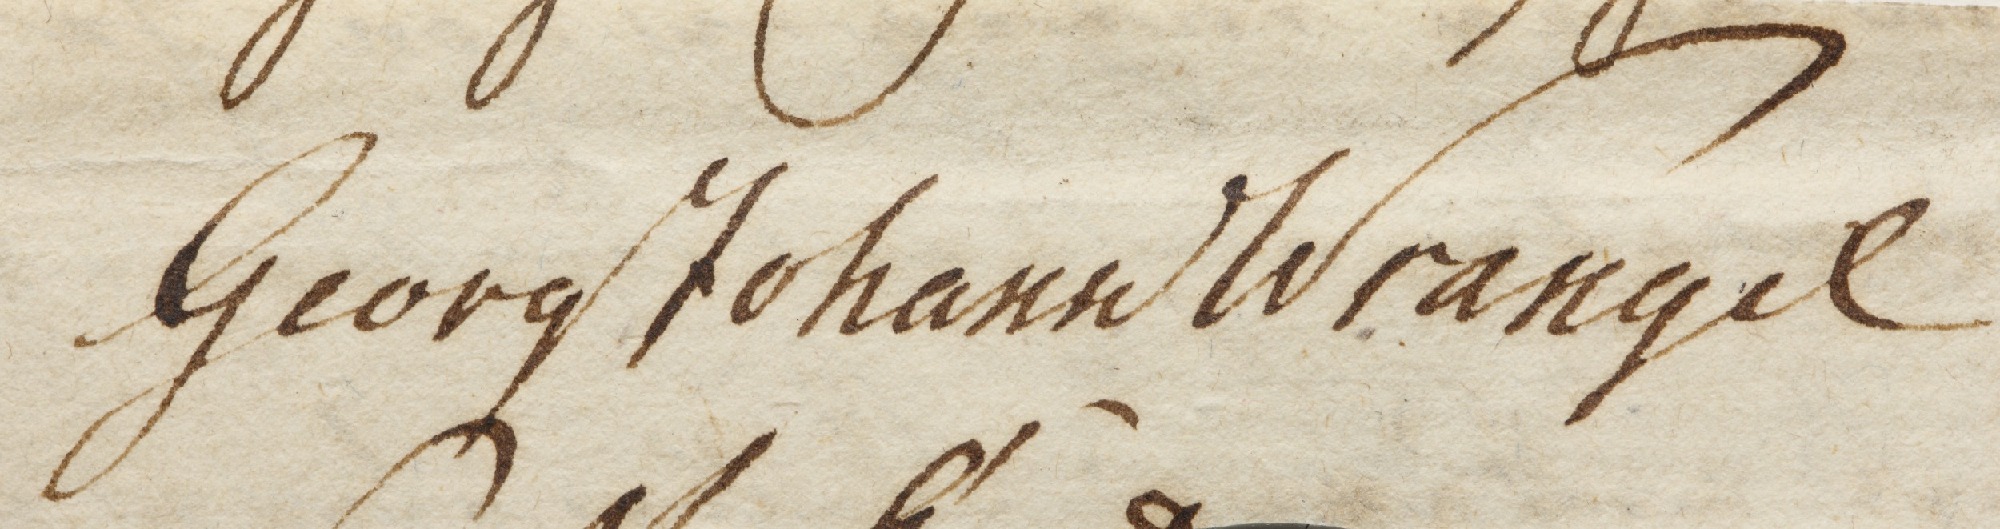 Georg Johann Wrangel